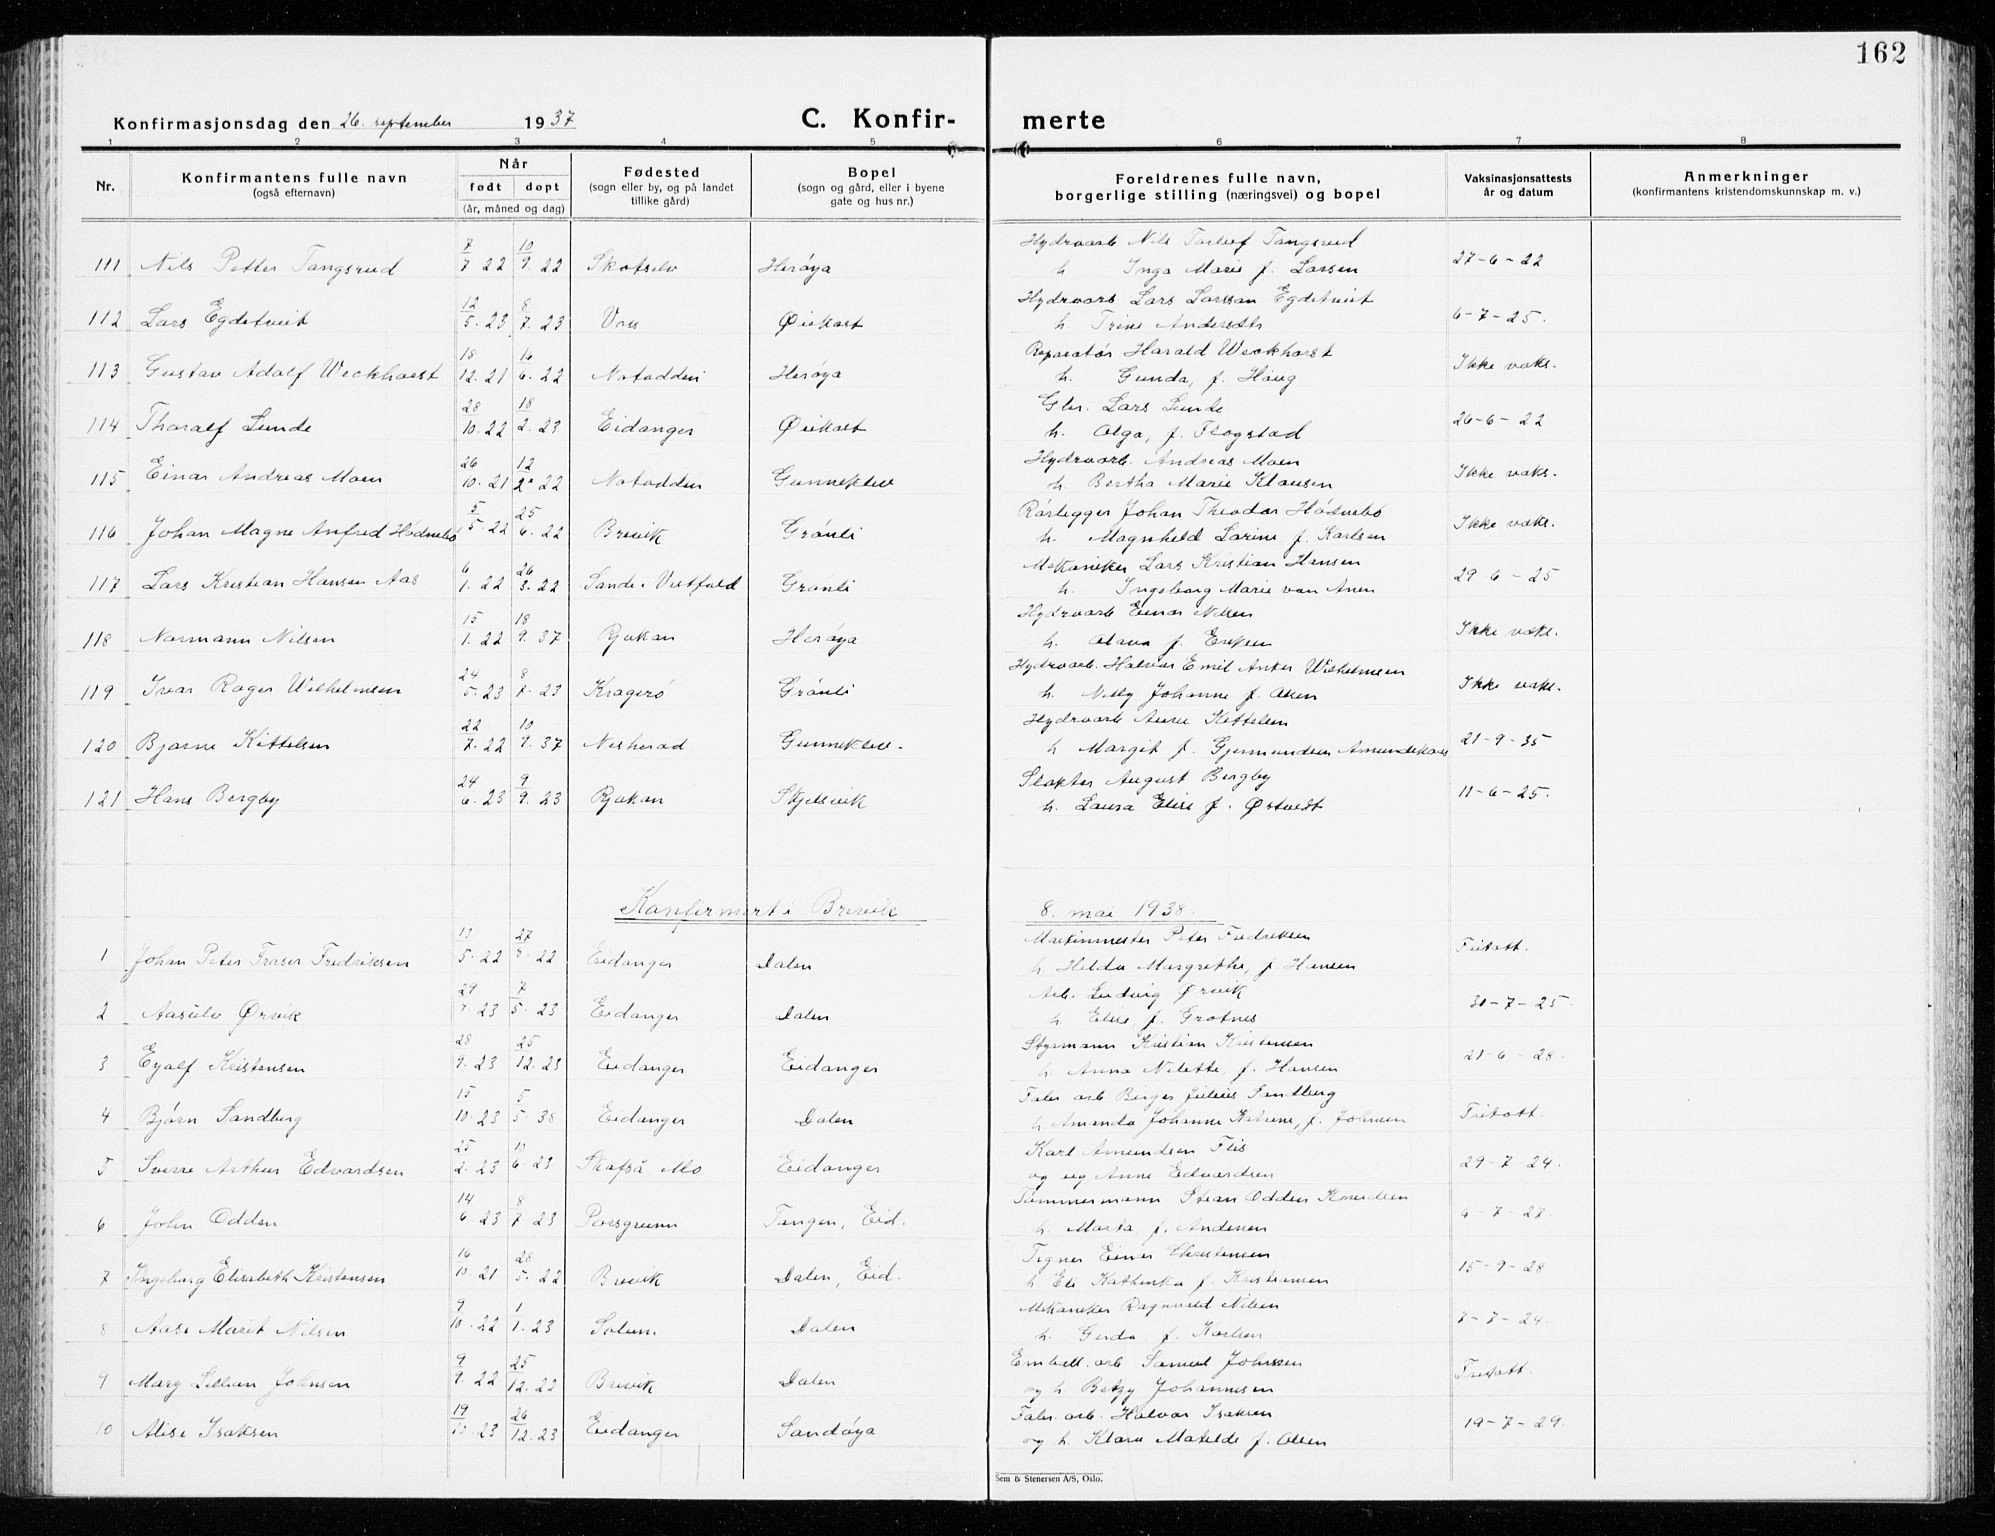 162
Konfirmasjonsdag den 26. september 1937
C. Konfir-
merte
1 2 3 4 5 6 7 8
Nr.
Konfirmantens fulle navn
(også efternavn)
Når
født døpt
(år, måned og dag)
Fødested
(sogn eller by, og på landet
tillike gård)
Bopel
(sogn og gård, eller i byene
gate og hus nr.)
Foreldrenes fulle navn,
borgerlige stilling (næringsvei) og bopel
Vaksinasjonsattests
år og datum
Anmerkninger
(konfirmantens kristendomskunnskap m. v.)
111 Nils Petter Tangsrud 7/7 22 10/9. 22 Skotselv Herøya
Hydroarb Nils Torleif Tangsrud
h. Inga Marie f. Larsen
27-6-22
112 Lars Egdetveit 12/5. 23 8/7. 23 Voss Øiekast
Hydroarb Lars Larssan Egdetveit
h. Trine Andersdtr
6-7-25.
113 Gustav Adolf Weckhorst 18/12. 21 16/6. 22 Notodden Herøya
Reparatør Harald Weckhorst
h. Gunda, f. Haug
Ikke vaks.
114 Thoralf Lunde 28/10. 22 18/2. 23 Eidanger Øiekast
Gbr. Lars Lunde
h. Olga, f. Flogstad
26-6-22
115 Einar Andreas Moen 26/10. 21 12/2. 22 Notodden Gunneklev
Hydroarb. Andreas Moen
h. Bertha Marie Klausen
Ikke vaks.
116 Johan Magne Anfred Hødnebø 5/5. 22 25/6. 22 Brevik Grønli
Rørlegger Johan Theodor Hødnebø
h. Magnhild Larine f. Karlsen
Ikke vaks.
117 Lars Kristian Hansen Aas 6/1. 22 26/3. 22 Sande i Vestfold Grønli
Mekaniker Lars Kristian Hansen
h. Ingeborg Marie van Anen
29 6-25
118 Normann Nilsen 15/1. 22 18/9. 37 Rjukan Herøya
Hydroarb Einar Nilsen
h. Olava f. Eriksen
Ikke vaks.
119 Ivar Roger Wilhelmsen 24/5. 23 8/7. 23 Kragerø Grønli
Hydroarb. Halvor Emil Anker Wilhelmsen
h. Nelly Johanne f. Olsen
Ikke vaks.
120 Bjarne Kittelsen 22/7. 22 10/9. 37 Nesherad Gunneklev.
Hydroarb Kittelsen
h Margit f. Gjermundsen
21-9-35
121 Hans Bergby 24/6. 23 9/9. 23 Rjukan Skjelsvik
Slakter August Bergby
h. Laura Elise f. Ørstvedt
11-6-25.
Konfirmert i Brevik
8. mai 1938.
1 Johan Peter Fraser Fredriksen 13/5. 22 27/8. 22 Eidanger Dalen
Maskinmester Peter Fredriksen
h Hilda Margrethe, f. Hansen
Fritatt.
2 Aasulv Ørvik 29/ 23 7/5. 23 Eidanger Dalen
Arb. Ludvig Ørvik
h. Elise f. Grotnes
30-7-25.
3 Eyolf Kristensen 28/9. 23 25/12. 23 Eidanger Eidanger
Styrmann Kristian Kristensen
h. Anna Nilette, f. Hansen
21-6-28.
4 Bjørn Sandberg 15/10. 23 5/5. 38 Eidanger Dalen
Fabr arb Birger Julius Sandberg
h Amanda Johanne Katrine, f. Johnsen
Fritatt.
5 Sverre Arthur Edvardsen 25/2. 23 /6. 23 Skafså Mo Eidanger
Karl Amundsen Flis
og ug Anne Edvardsen
29-7-24.
6 John Odden 14/6. 23 8/7. 23 Porsgrunn Tangen, Eid.
Tømmermann Stian Odden Knudsen
h. Marta, f. Andersen
6-7-27.
7 Ingeborg Elisabeth Kristensen 16/10. 21 28/5. 22 Brevik Dalen, Eid.
Tegner Einar Christensen
h. Eli Kathinka f. Kristiansen
15-9-28
8 Aase Marit Nilsen 9/10. 22 1/1. 23 Solum Dalen
Mekaniker Ragnvald Nilsen
h. Gerda f. Karlsen
7-7-24.
9 Mary Lillian Johnsen 9/9. 22 25/12. 22 Brevik Dalen
Emball. arb Samuel Johnsen
og h. Betzy Johannesen
Fritatt.
10 Alise Isaksen 19/10. 23 26/12. 23 Eidanger Sandøya
Fabr. arb. Halvor Isaksen
og h. Klara Matilde f. Olsen
19-7-29.
Sem & Stenersen A/S, Oslo.